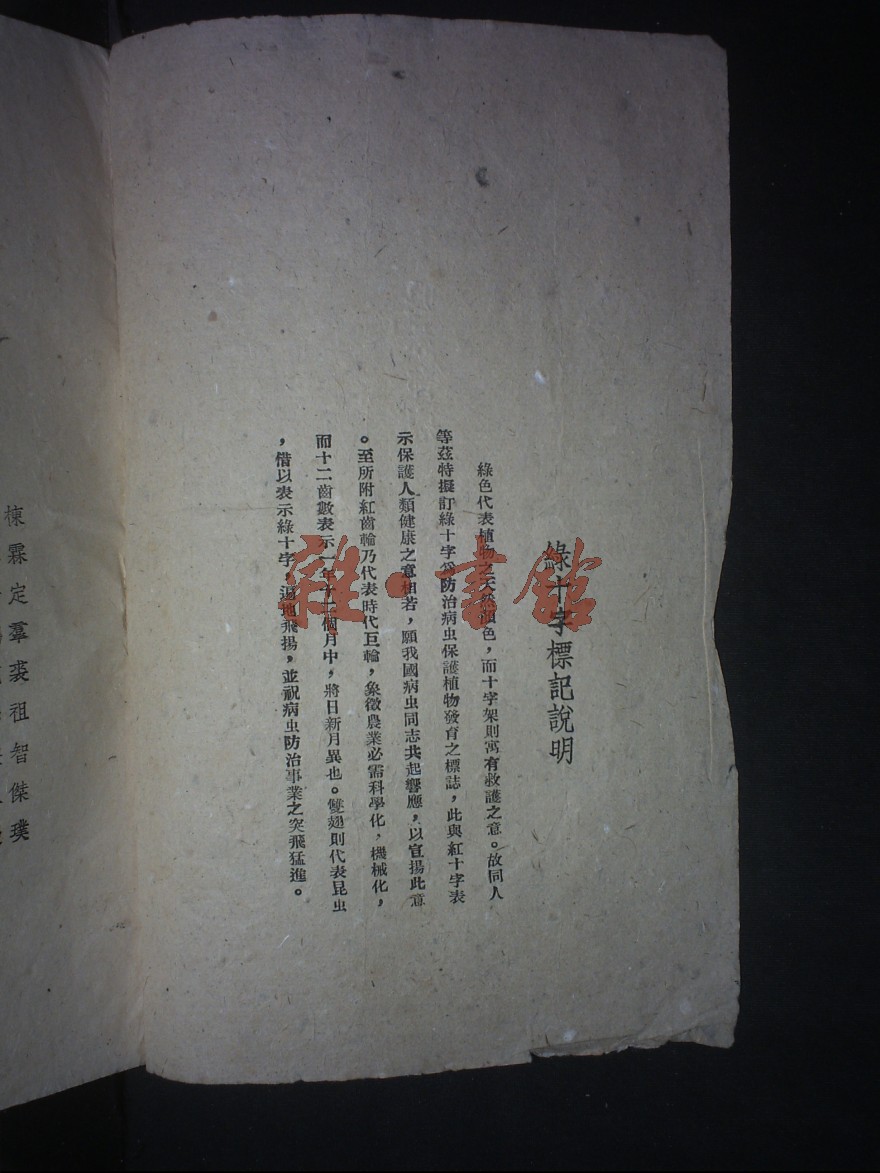 綠十字標記說明
綠色代表植物之天然顏色，而十字架則寓有救護之意。故同人
等茲特擬訂綠十字爲防治病虫保護植物發育之標誌，此與紅十字表
示保護人類健康之意相若，願我國病虫同志共起響應，以宣揚此意
。至所附紅齒輪乃代表時代巨輪，象徵農業必需科學化，機械化，
而十二齒數表示一年十二個月中，將日新月異也。雙翅則代表昆虫
，借以表示綠十字，遍地飛揚，並祝病虫防治事業之突飛猛進。
雜·書館
棟霖定羣裘祖智傑璞